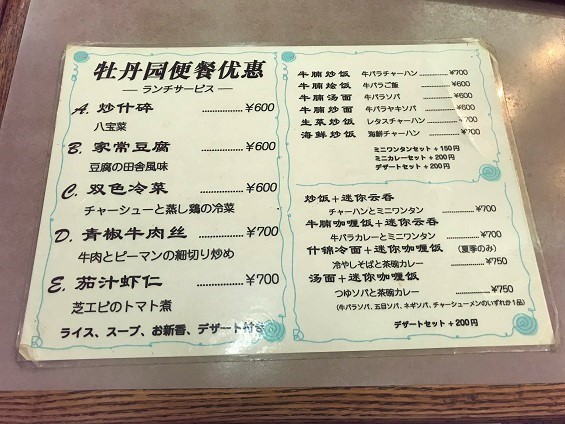 牡丹园便餐优惠
― ランチサービス ―
A. 炒什碎 ............ ¥600
八宝菜
B. 家常豆腐 ............ ¥600
豆腐の田舎風味
C. 双色冷菜 ............ ¥600
チャーシューと蒸し鶏の冷菜
D. 青椒牛肉丝 ............ ¥700
牛肉とピーマンの細切り炒め
E. 茄汁虾仁 ............ ¥700
芝エビのトマト煮
ライス、スープ、お新香、デザート付き
牛腩炒饭 牛バラチャーハン ............ ¥700
牛腩烩饭 牛バラご飯 ............ ¥600
牛腩汤面 牛バラソバ ............ ¥600
牛腩炒面 牛バラヤキソバ ............ ¥600
生菜炒饭 レタスチャーハン ............ ¥700
海鲜炒饭 海鮮チャーハン ............ ¥700
ミニワンタンセット + 150円
ミニカレーセット + 200円
デザートセット + 200円
炒饭＋迷你云吞
チャーハンとミニワンタン ............ ¥700
牛腩咖喱饭＋迷你云吞
牛バラカレーとミニワンタン ............ ¥700
什锦冷面＋迷你咖喱饭 (夏季のみ)
冷やしそばと茶碗カレー ............ ¥750
汤面＋迷你咖喱饭
つゆソバと茶碗カレー ............ ¥750
(牛バラソバ、五目ソバ、ネギソバ、チャーシューメンのいずれか1品)
デザートセット + 200円